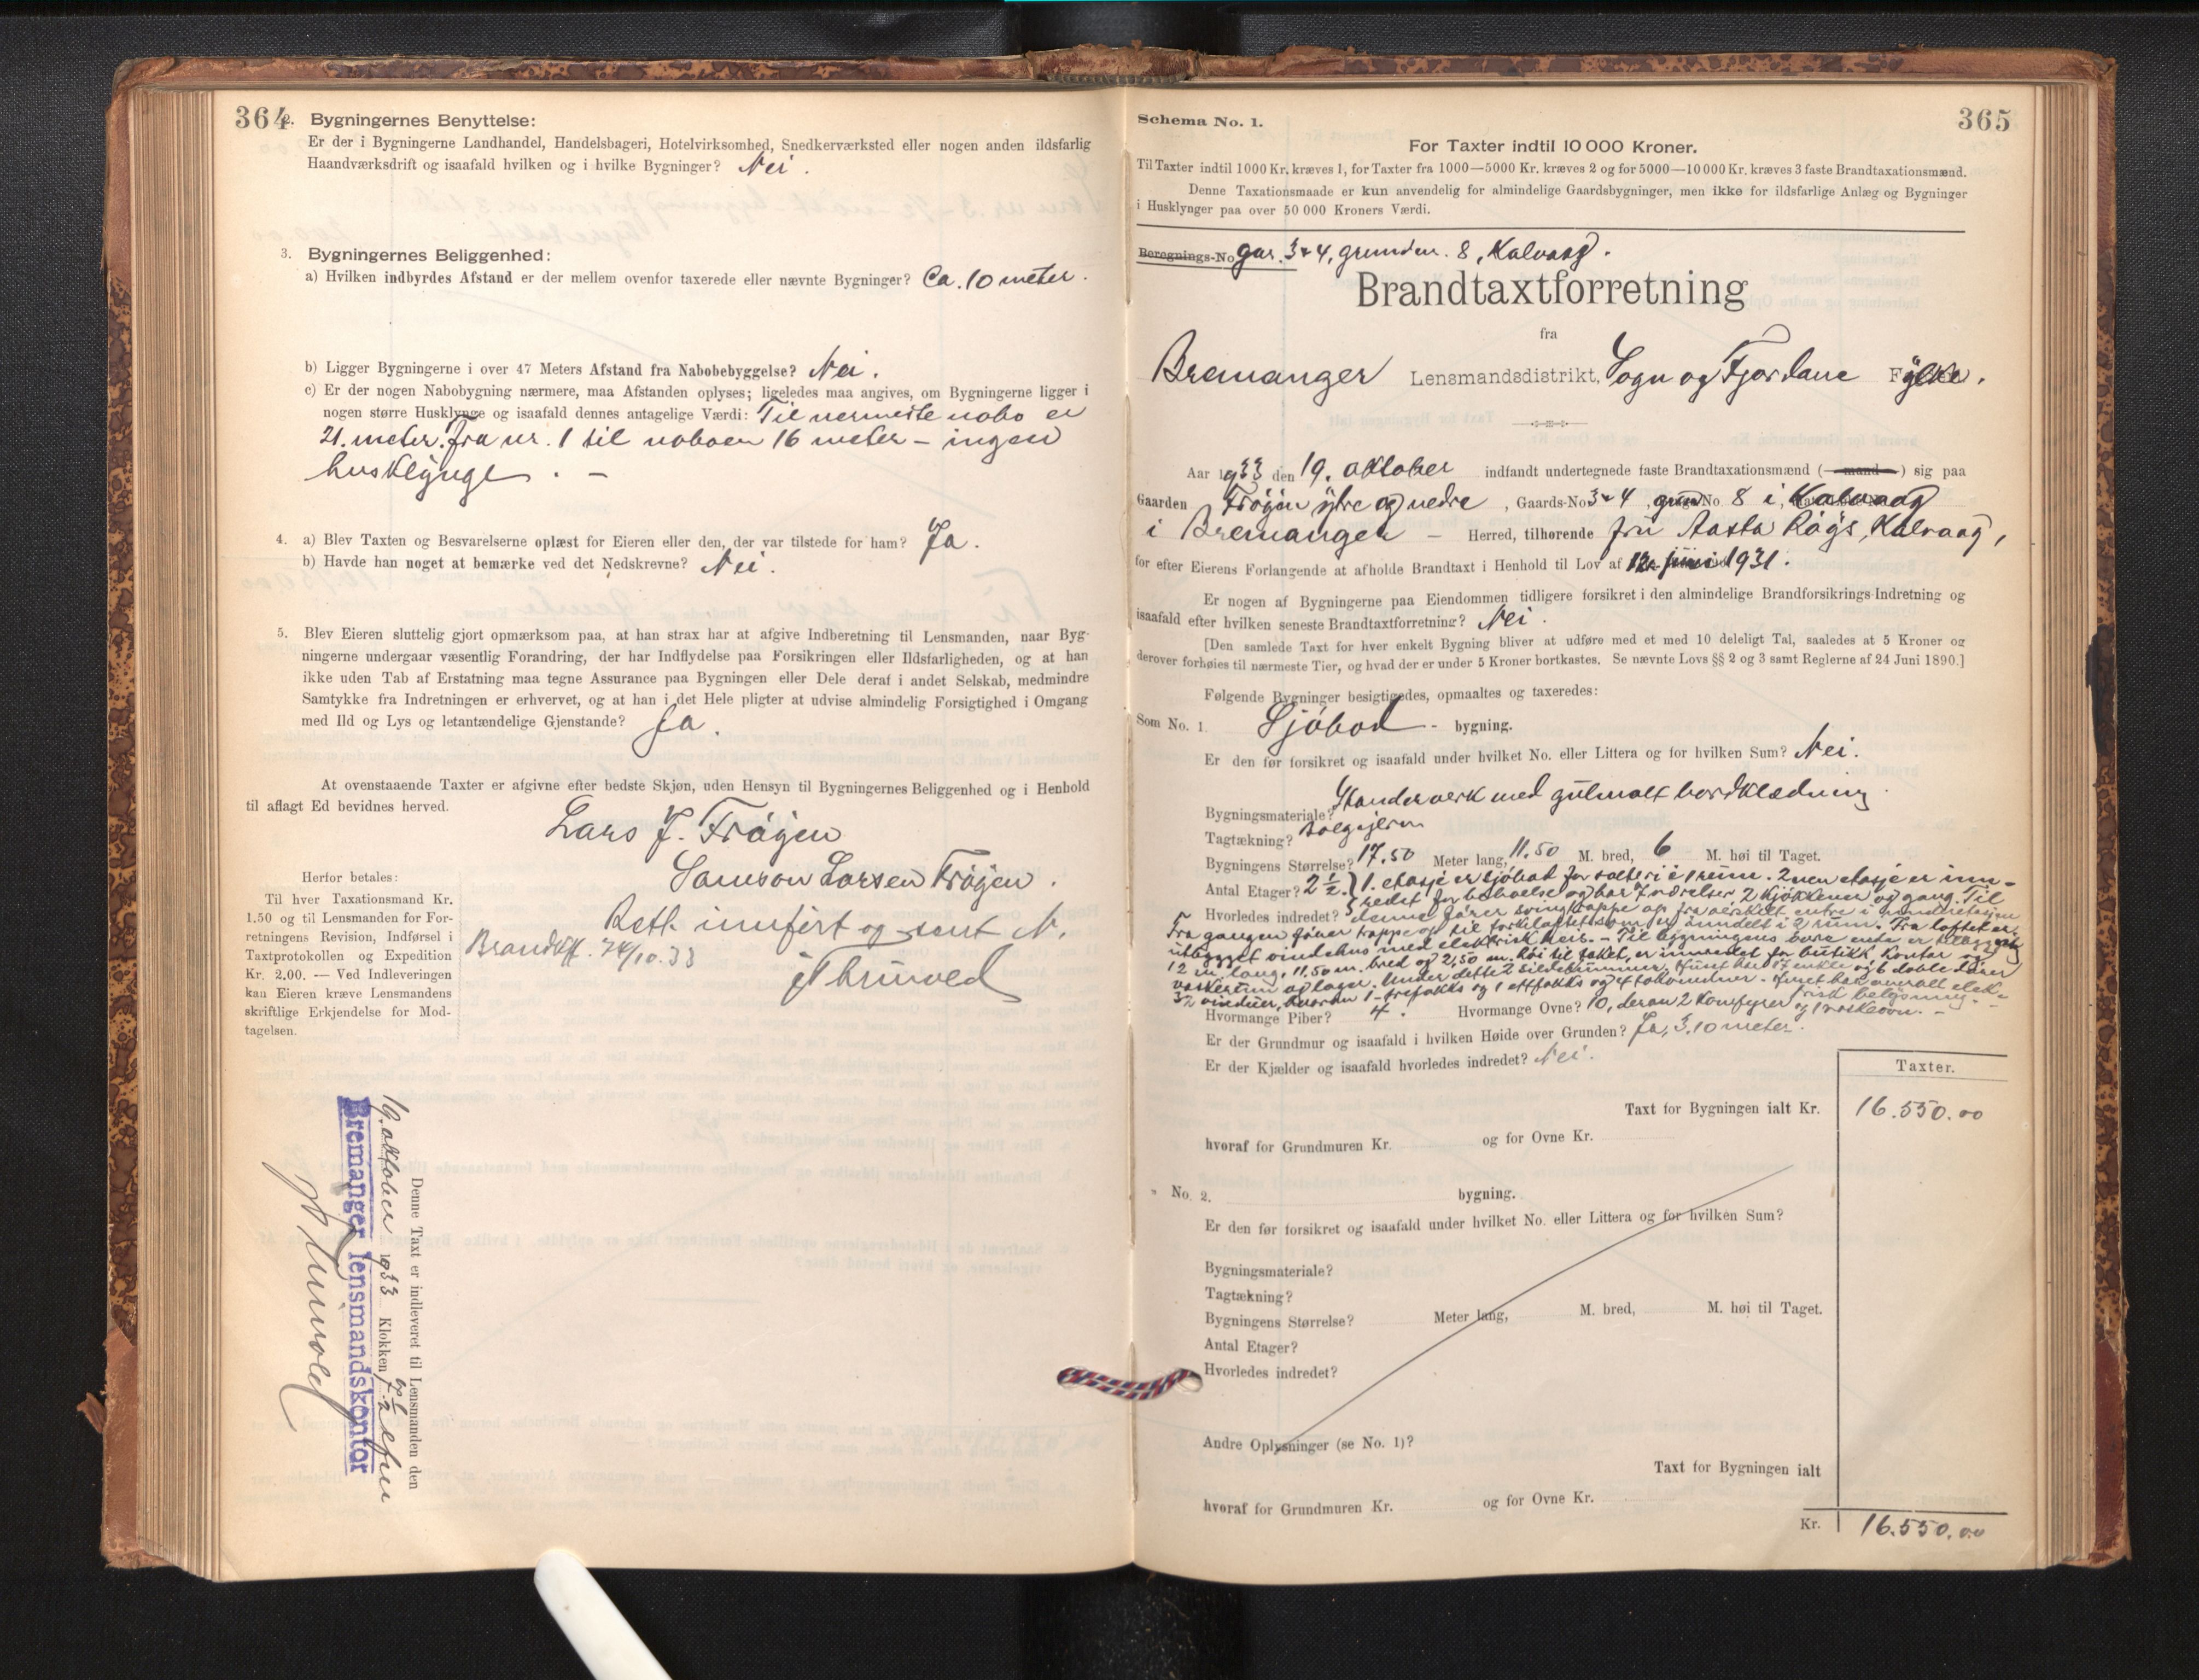 364
2. Bygningernes Benyttelse:
Er der i Bygningerne Landhandel, Handelsbageri, Hotelvirksomhed, Snedkerværksted eller nogen anden ildsfarlig
Haandværksdrift og isaafald hvilken og i hvilke Bygninger? Nei.
3. Bygningernes Beliggenhed:
a) Hvilken indbyrdes Afstand er der mellem ovenfor taxerede eller nævnte Bygninger? Ca. 10 meter.
b) Ligger Bygningerne i over 47 Meters Afstand fra Nabobebyggelse? Nei.
c) Er der nogen Nabobygning nærmere, maa Afstanden oplyses; ligeledes maa angives, om Bygningerne ligger i
nogen større Husklynge og isaafald dennes antagelige Værdi: Til nermeste nabo er
21. meter. Fra nr. 1 til naboen 16 meter - ingen
husklynge. -
4. a) Blev Taxten og Besvarelserne oplæst for Eieren eller den, der var tilstede for ham? Ja.
b) Havde han noget at bemærke ved det Nedskrevne? Nei.
5. Blev Eieren sluttelig gjort opmærksom paa, at han strax har at afgive Indberetning til Lensmanden, naar Byg-
ningerne undergaar væsentlig Forandring, der har Indflydelse paa Forsikringen eller Ildsfarligheden, og at han
ikke uden Tab af Erstatning maa tegne Assurance paa Bygningen eller Dele deraf i andet Selskab, medmindre
Samtykke fra Indretningen er erhvervet, og at han i det Hele pligter at udvise almindelig Forsigtighed i Omgang
med Ild og Lys og letantændelige Gjenstande? Ja.
At ovenstaaende Taxter er afgivne efter bedste Skjøn, uden Hensyn til Bygningernes Beliggenhed og i Henhold
til aflagt Ed bevidnes herved.
Lars J. Frøyen
Samson Larsen Frøyen.
Rett innført og sent N.
Brandkff. 24/10.33
Herfor betales:
Til hver Taxationsmand Kr.
1.50 og til Lensmanden for For-
retningens Revision, Indførsel i
Taxtprotokollen og Expedition
Kr. 2,00. — Ved Indleveringen
kan Eieren kræve Lensmandens
skriftlige Erkjendelse for Mod-
tagelsen.
Denne Taxt er indleveret til Lensmanden den
19. oktober 1933 Klokken 7 1/2 efm
Bremanger lensmandskontor
365
Schema No. 1.
For Taxter indtil 10 000 Kroner.
Til Taxter indtil 1000 Kr. kræves 1, for Taxter fra 1000—5000 Kr. kræves 2 og for 5000—10 000 Kr. kræves 3 faste Brandtaxationsmænd.
Denne Taxationsmaade er kun anvendelig for almindelige Gaardsbygninger, men ikke for ildsfarlige Anlæg og Bygninger
i Husklynger paa over 50 000 Kroners Værdi.
Beregnings-No gnr. 3 & 4, grundnr. 8, Kalvaag.
Brandtaxtforretning
fra
Bremanger Lensmandsdistrikt, Sogn og Fjordane Fylke.
Aar 1933 den 19. oktober indfandt undertegnede faste Brandtaxationsmænd (— mand —) sig paa
Gaarden Frøyen ytre og nedre, Gaards-No 3 & 4, grun No 8 i Kalvaag
i Bremanger - Herred, tilhørende fru Aasta Røys, Kalvaag,
for efter Eierens Forlangende at afholde Brandtaxt i Henhold til Lov af 12. juni 1931.
Er nogen af Bygningerne paa Eiendommen tidligere forsikret i den almindelige Brandforsikrings-Indretning og
isaafald efter hvilken seneste Brandtaxtforretning? Nei.
[Den samlede Taxt for hver enkelt Bygning bliver at udføre med et med 10 deleligt Tal, saaledes at 5 Kroner og
derover forhøies til nærmeste Tier, og hvad der er under 5 Kroner bortkastes. Se nævnte Lovs §§ 2 og 3 samt Reglerne af 24 Juni 1890.]
Følgende Bygninger besigtigedes, opmaaltes og taxeredes:
Som No. 1. Sjøbod - bygning.
Er den før forsikret og isaafald under hvilket No. eller Littera og for hvilken Sum? Nei.
Bygningsmateriale? Standerverk med gulmalt bordklædning.
Tagtækning? Bølgejern
Bygningens Størrelse? 17.50 Meter lang, 11.50 M. bred, 6 M. høi til Taget.
Antal Etager? 2 1/2. 1. etasje er sjøbod for salteri i 1 rum. 2nen etasje er inn-
redet for beboelse og har 7 værelser, 2 kjøkkener og gang. Til
Hvorledes indredet? denne fører svingtrappe op fra særskilt entre i underetasjen
Fra gangen fører trappe op til mørkloftet som er inndelt i 2 rum. Fra loftet er
utbygget vindehus med elektrisk heis. - Til bygningens øvre ende er tilbygg
12 m. lang, 11,50 m. bred og 2,50 m. høi til taket, er innredet for butikk, kontor og
vaskerum og lager. Under dette 2 silderummer. Huset har 17 enkle og 6 doble dører
32 vinduer, hvorav 1 trefakks og 1 ettfakks og 4 takvinduer. Huset har overalt elek-
trisk belysning. -
Hvormange Piber? 4. Hvormange Ovne? 10, derav 2 komfyrer og 1 vaskeovn. -
Er der Grundmur og isaafald i hvilken Høide over Grunden? Ja, 3.10 meter.
Er der Kjælder og isaafald hvorledes indredet? Nei.
Taxter.
Taxt for Bygningen ialt Kr. 16.550.00
hvoraf for Grundmuren Kr. og for Ovne Kr.
" No. 2. bygning.
Er den før forsikret og isaafald under hvilket No. eller Littera og for hvilken Sum?
Bygningsmateriale?
Tagtækning?
Bygningens Størrelse? Meter lang, M. bred, M. høi til Taget.
Antal Etager?
Hvorledes indredet?
Andre Oplysninger (se No. 1)?
Taxt for Bygningen ialt
hvoraf for Grundmuren Kr. og for Ovne Kr.
Kr. 16.550.00